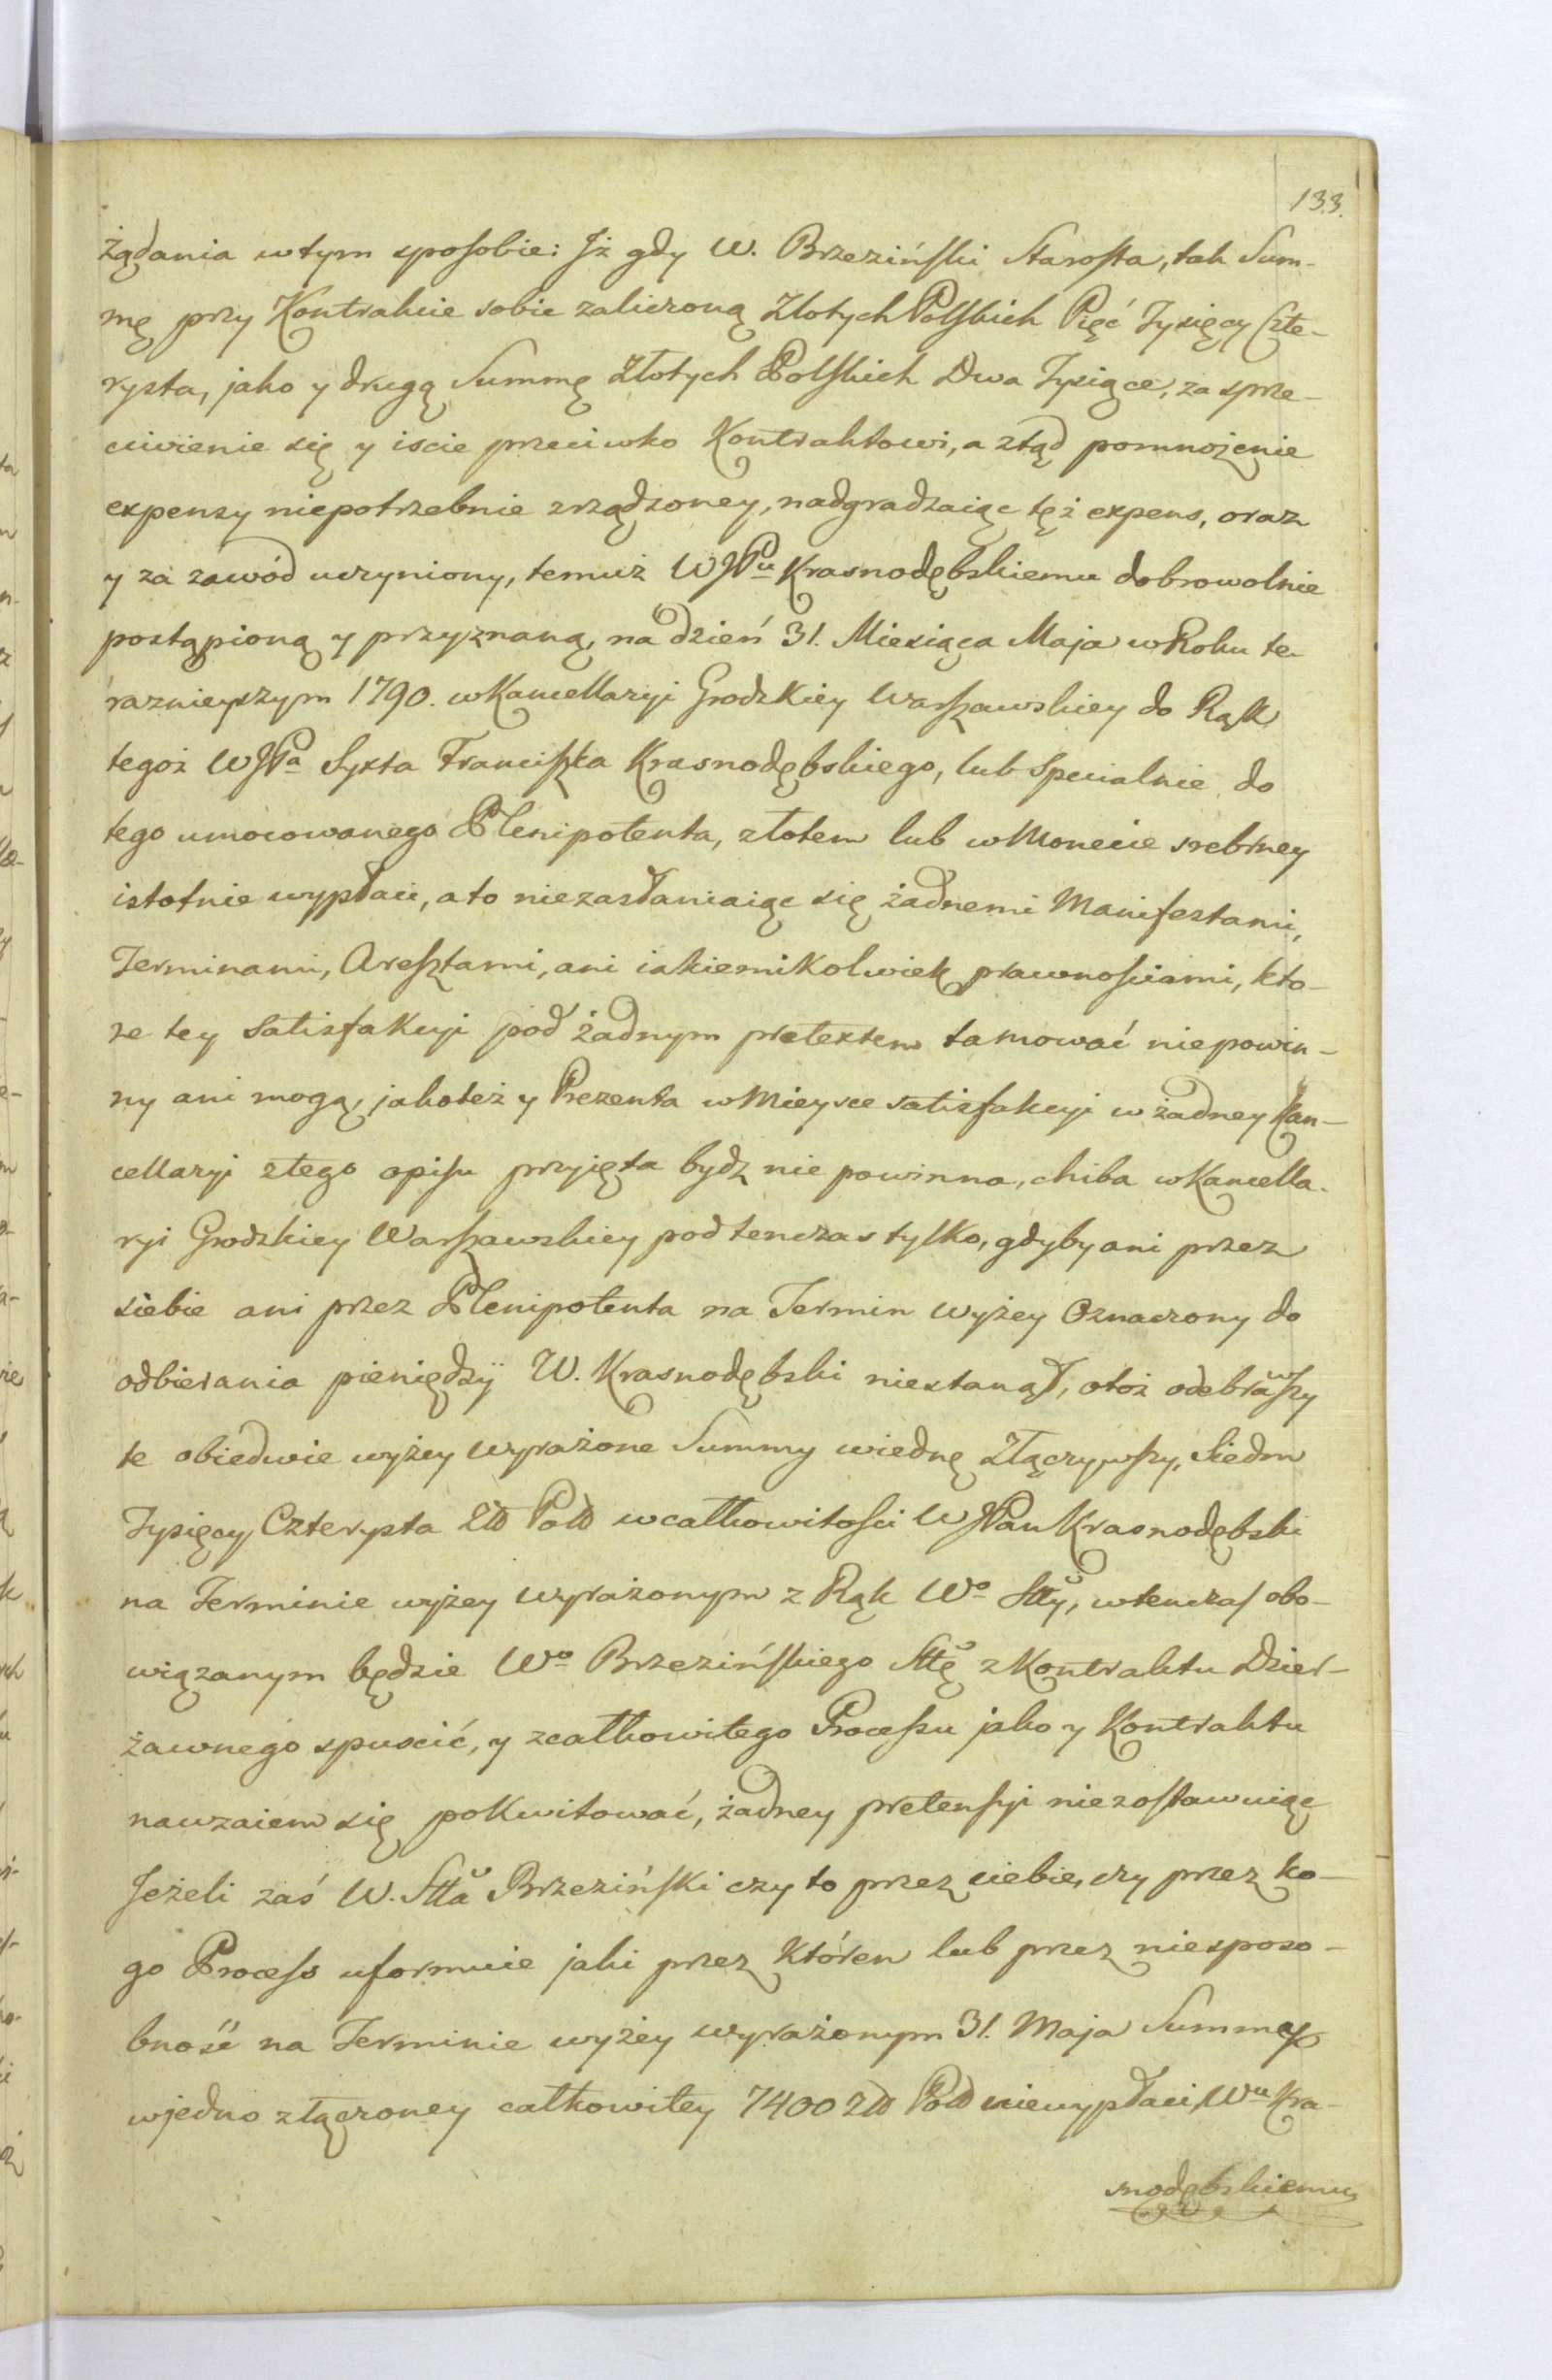 133.
żądania wtym sposobie: Jż gdy W. Brzeziński Starosta, tak Sum-
mę przy Kontrakcie sobie zaliczoną Złotych Polskich Pięć Tysięcy Czte-
rysta, jako y drugą Summę Złotych Polskich Dwa Tysiące, za sprze-
ciwienie się y iscie przeciwko Kontraktowi, a ztąd pomnożenie
expensy niepotrzebnie zrządzoney, nadgradzaiąc tęż expens, oraz
y za zawód uczyniony, temuż WJPu Krasnodębskiemu dobrowolnie
postąpioną y przyznaną, na dzień 31. Miesiąca Maja w Roku te-
raznieyszym 1790. w Kancellaryi Grodzkiey Warszawskiey do Rąk
tegoż WJPa Syxta Franciszka Krasnodębskiego, lub specialnie do
tego umocowanego Plenipotenta, złotem lub w Monecie srebrney
istotnie wypłaci, a to niezasłaniaiąc się żadnemi Manifestami,
Terminami, Aresztami, ani iakiemikolwiek prawnościami, kto-
re tey Satisfakcyi pod żadnym pretextem tamować niepowin-
ny ani mogą, jakoteż y Prezenta w Mieysce satisfakcyi w żadney Kan-
cellaryi ztego opisu przyięta bydz nie powinna, chiba w Kancella-
ryi Grodzkiey Warszawskiey pod tenczas tylko, gdyby ani przez
siebie ani przez Plenipotenta na Termin wyżey Oznaczony do
odbierania pieniędzÿ W. Krasnodębski niestanął, otoż odebrawszy
te obiedwie wyżey wyrażone Summy wiednę złączywszy, Siedm
Tysięcy Czterysta Zło Polo wcałkowitości WJPan Krasnodębski
na Terminie wyżey wyrażonym z Rąk Wo Stty, wtenczas obo-
wiązanym będzie Wo Brzezińskiego Sttę z Kontraktu Dzier-
żawnego spuscić, y zcałkowitego Processu jako y Kontraktu
nawzaiem się pokwitować, żadney pretensyi niezostawuiąc
Jeżeli zaś W. Stta Brzeziński czy to przez siebie, czy przez ko-
go Process uformuie jaki przez któren lub przez niesposo-
bność na Terminie wyżey wyrażonym 31. Maja Summy
wjedno złączoney całkowitey 7400 Zło Polo niewypłaci, Wu Kra-
snodębskiemu